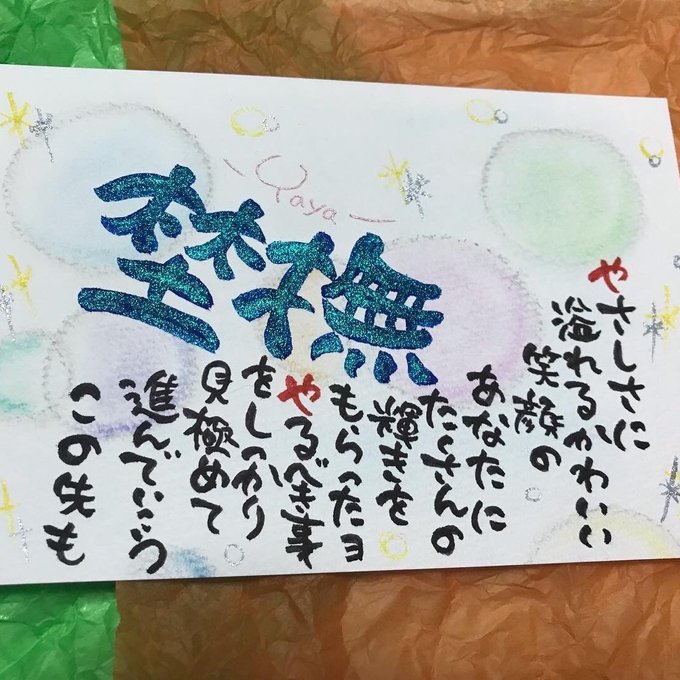 Yaya
やさしさに
溢れるかわいい
笑顔の
あなたに
たくさんの
輝きを
もらったヨ
やるべき事
をしっかり
見極めて
進んでいこう
この先も